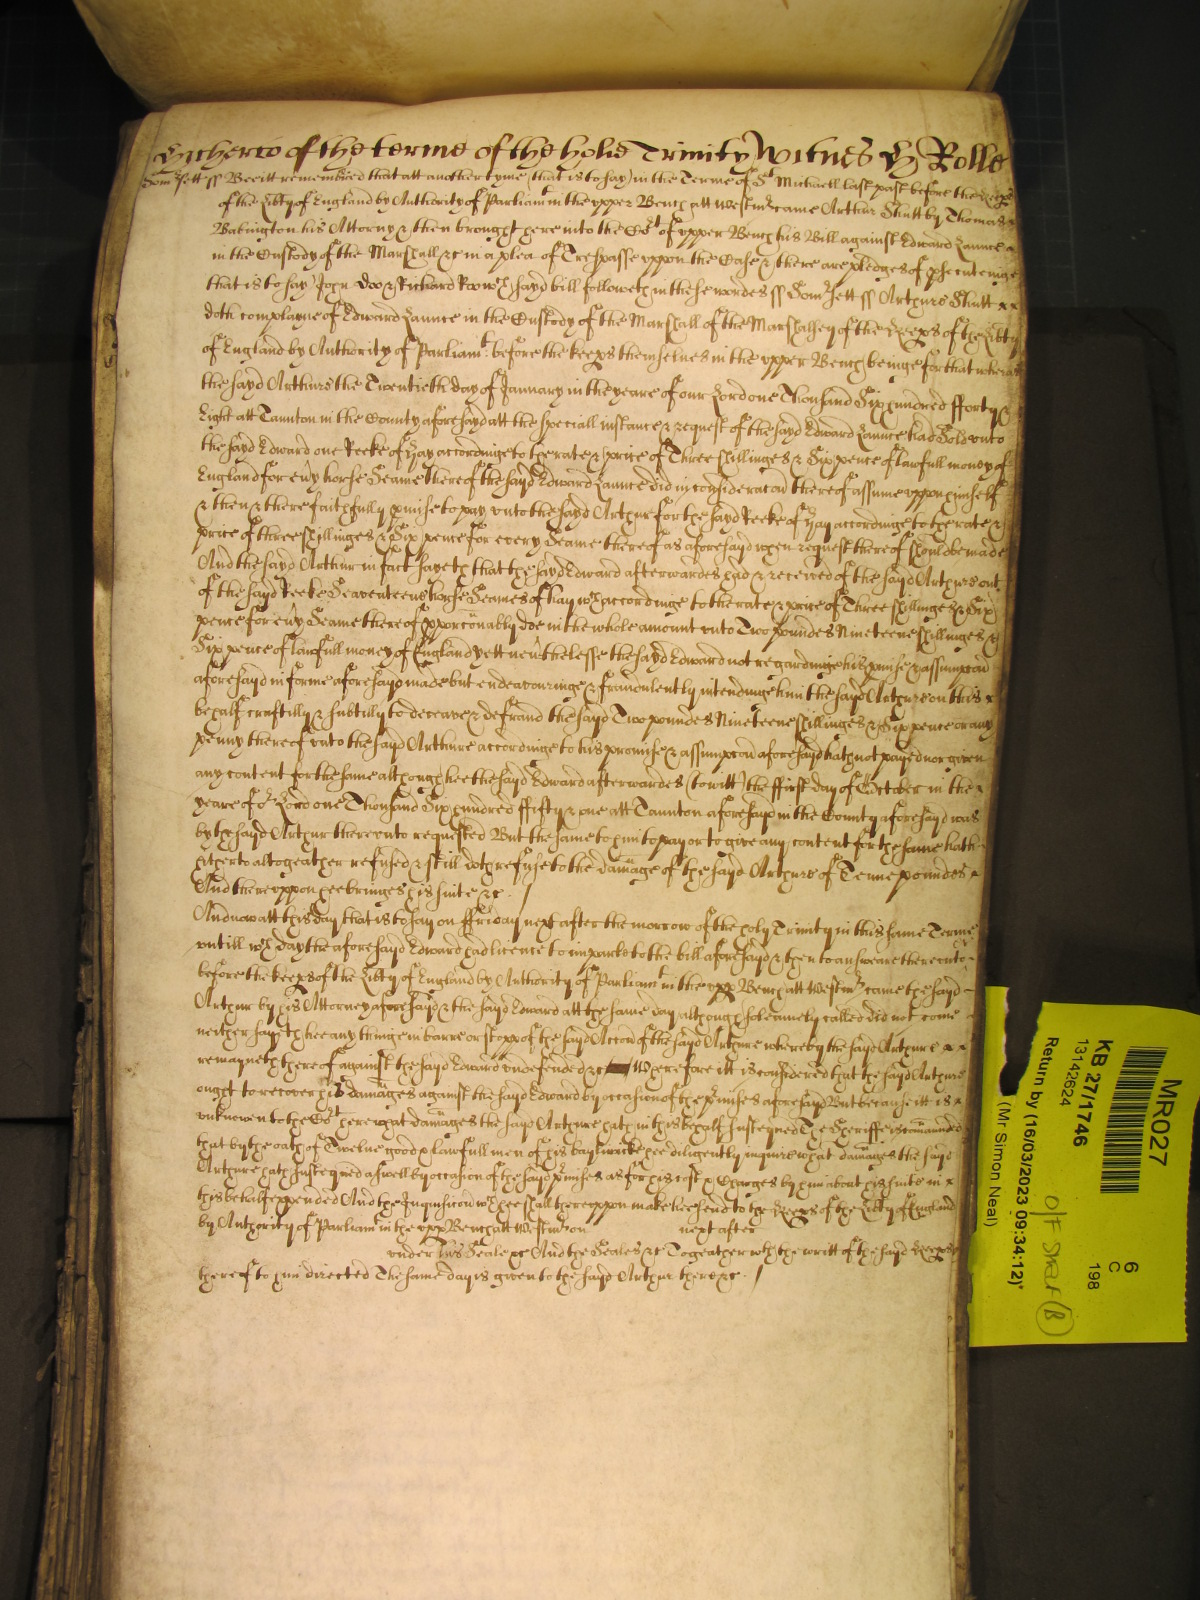 Hitherto of the terme of the holie Trinity Witnes H Rolle
Somset ss Bee itt remembred that att another tyme (that is to say) in the Terme of St Michaell last past before the keeps
of the Libty of England by Authority of Parliamt in the upper Bench att Westmr came Arthur Shutt by Thomas
Babington his Attorny & then brought here into the Cort of upper Bench his Bill against Edward Launce
in the Custody of the Marshall &c in a plea of Trespasse uppon the Case & there are pledges of psecuteinge
that is to say John Doo & Richard Roo wch sayd bill followeth in these wordes ss Somset ss Arthure Shutt
doth complayne of Edward Launce in the Custody of the Marshall of the Marshalsey of the Keeps of the Libty
of England by Authority of Parliamt before the keeps themselves in the upper Bench beinge for that wheras
the sayd Arthure the Twentieth day of January in the yeare of our Lord one Thousand Six hundred fforty &
Eight att Taunton in the County aforesayd att the speciall instance & request of the sayd Edward Launce had Sold unto
the sayd Edward one Reeke of Hay accordinge to the rate & price of Three shillinges & Six pence of lawfull money of
England for evy horse Seame thereof the sayd Edward Launce did in consideracon thereof assume uppon himself
& then & there faithfully pmise to pay unto the sayd Arthur for the sayd Reeke of Hay accordinge to the rate &
price of three shillinges & Six pence for every Seame thereof as aforesayd when request thereof should be made
And the sayd Arthur in fact sayeth that the sayd Edward afterwardes had & received of the sayd Arthure out
of the sayd Reeke Seaventeene horse Seames of hay wch accordinge to the rate & price of Three shillinges & Six
pence for evy Seame thereof pporconably doe in the whole amount unto Two poundes Nineteene shillinges &
Six pence of lawfull money of England yett nevthelesse the sayd Edward not regardinge his pmise & assumpcon
aforesayd in forme aforesayd made but endeavouringe & fraudulently intendinge him the sayd Arthure on this
behalf craftilly & subtilly to deceave & defraud the sayd Two poundes Nineteene shillinges & Six pence or any
penny thereof unto the sayd Arthure accordinge to his promise & assumpcon aforesayd hath not payed nor given
any content for the same although hee the sayd Edward afterwardes (to witt) the ffirst day of October in the
yeare of or Lord one Thousand Six hundred ffifty & one att Taunton aforesayd in the County aforesayd was
by the sayd Arthur thereunto requested But the same to him to pay or to give any content for the same hath
hitherto altogeather refused & still doth refuse to the damage of the sayd Arthure of Tenne poundes
And thereuppon hee bringes his suite &c.
And now att this day that is to say on ffriday next after the morrow of the holy Trinity in this same Terme
untill wch day the aforesayd Edward had licence to imparle to the bill aforesayd & then to answeare thereunto
before the keeps of the Libty of England by Authority of Parliamt in the upp Bench att Westmr came the sayd
Arthur by his Attorney aforesayd & the sayd Edward att the same day although solemnely called did not come
neither sayeth hee any thinge in barre or stopp of the sayd Accon of the sayd Arthure whereby the sayd Arthure
remayneth thereof against the sayd Edward undefended &c Wherefore itt is considered that the sayd Arthure
ought to recover his damages against the sayd Edward by occasion of the pmises aforesayd But because itt is
unknowen to the Cort here what damages the sayd Arthure hath in this behalf susteyned The Sheriffe is comaunded
that by the oath of Twelve good & lawfull men of his baylwicke hee diligently inquire what damages the sayd
Arthure hath susteyned aswell by occasion of the sayd pmises as for his cost & Charges by him about his suite in
this behalf expended And the Inquisicon wch hee shall thereuppon make hee send to the Keeps of the Libty of England
by Authority of Parliam in the upp Bench att Westmr on next after
under his Seale &c And the Seales &c Togeather wth the writt of the sayd Keeps
thereof to him directed The same day is given to the sayd Arthur there &c.
MR027
KB 27/1746
13142624
Return by (16/03/2023 09:34:12)*
(Mr Simon Neal)
6
C
198
O/F Shelf (B)